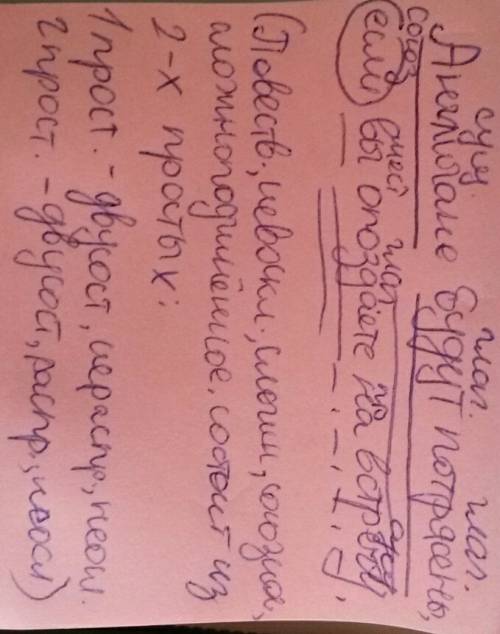 сущ. глаг. глаг.
Англичане будут потрясены,
союз мест глаг пр сущ
(если) вы опоздаете на встречу.
(Повеств., невоскл., сложн., союзная,
сложноподчинённое, состоит из
2-х простых:
1 прост. - двусост, нераспр, неосл.
2 прост. - двусост, распр, неосл)